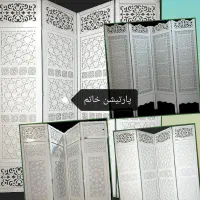 پارتیشن خاتم